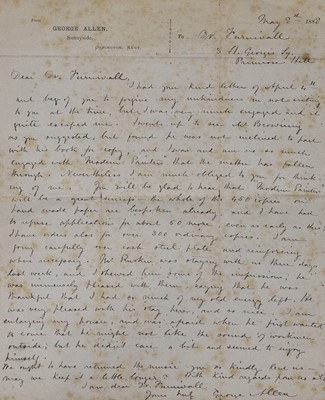 May 2nd 1888
GEORGE ALLEN,
Sunnyside,
Orpington, Kent.
To Dr. Furnivall
3 St. George's Sq.
Primrose Hill
Dear Dr. Furnivall,
I had your kind letter of April 4th
and beg of you to forgive my unkindness in not writing
to you at the time, but I was very much engaged and it
quite escaped me. I wrote up to see old Browning
as you suggested, but found he was not inclined to part
with his book for copy, and I was and am so so much
engaged with Modern Painters that the matter has fallen
through. Nevertheless I am much obliged to you for think-
ing of me. You will be glad to hear that Modern Painters
will be a great success - the whole of the 450 copies on
hand made paper are bespoken already, and I have had
to refuse application for about 50 more, even as early as this
I have orders also for over 300 ordinary copies. I am
going carefully over each steel plate and reimposing
when necessary. Mr. Ruskin was staying with us three days
last week, and I shewed him some of the impressions, he
was immensely pleased with them, saying that he was
thankful that I had so much of my old energy left. He
was very pleased with his stay here, and so nice. I am
enlarging my house, and was afraid when he first wanted
to come that he might not like the sound of workmen
outside; but he didn't care a bit and seemed to enjoy
himself.
We ought to have returned the music you so kindly lent us
may we keep it a little longer? With kind regards from us all
I am, dear Dr. Furnivall,
Yours truly George Allen